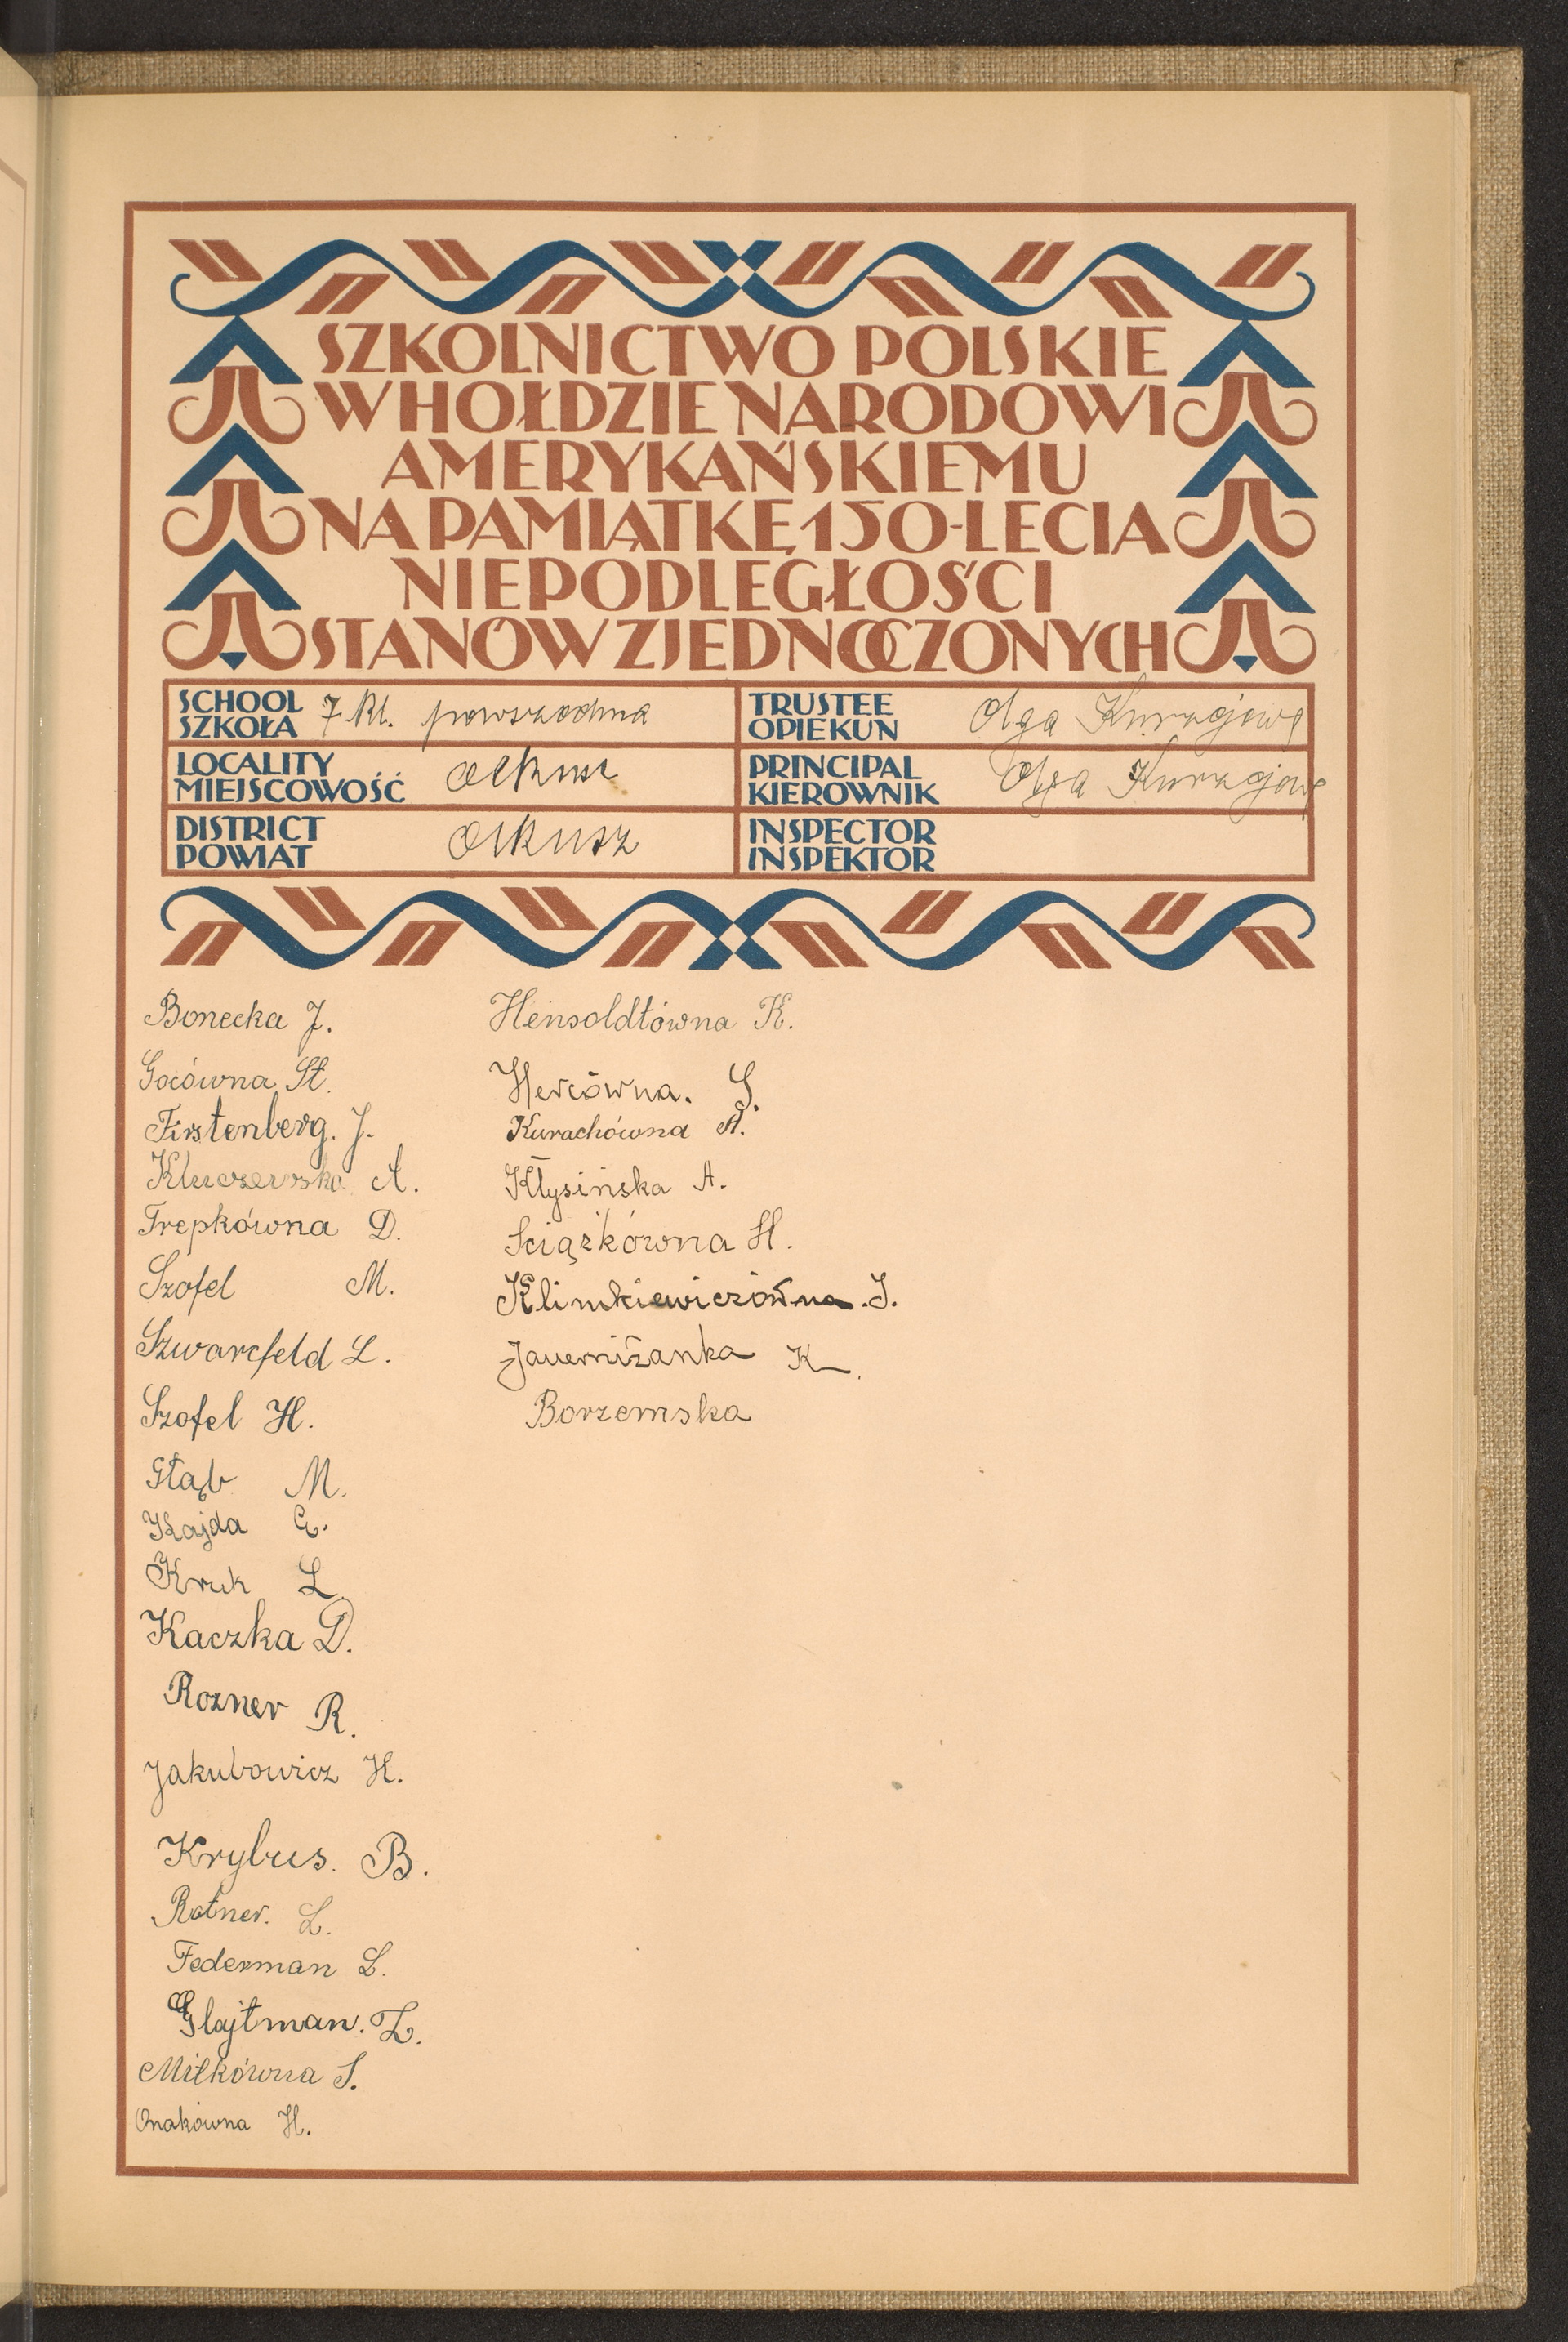 SZKOLNICTWO POLSKIE
W HOŁDZIE NARODOWI
AMERYKAŃSKIEMU
NA PAMIĄTKĘ 150-LECIA
NIEPODLEGŁOŚCI
STANÓW ZJEDNOCZONYCH
SCHOOL
SZKOŁA 7 kl. powszechna
TRUSTEE
OPIEKUN Olga
LOCALITY
MIEJSCOWOŚĆ Olkusz
PRINCIPAL
KIEROWNIK Olga
DISTRICT
POWIAT Olkusz
INSPECTOR
INSPEKTOR
Bonecka J.
Gocówna St.
Firstenberg. J.
Kluczewska A.
Trepkówna D.
Szofel M.
Szwarcfeld L.
Szofel H.
Głąb M.
Kajda G.
Kruk L.
Kaczka D.
Rozner R.
Jakubowicz H.
Krybus. B.
Rotner. L.
Federman L.
Glajtman. Z.
Miłkówna S.
Onakówna H.
Hensoldtówna K.
Hercówna. S.
Kurachówna A.
Kłysińska A.
Sciążkówna H.
Klimkiewiczówna. J.
Javerniżanka K.
Borzemska